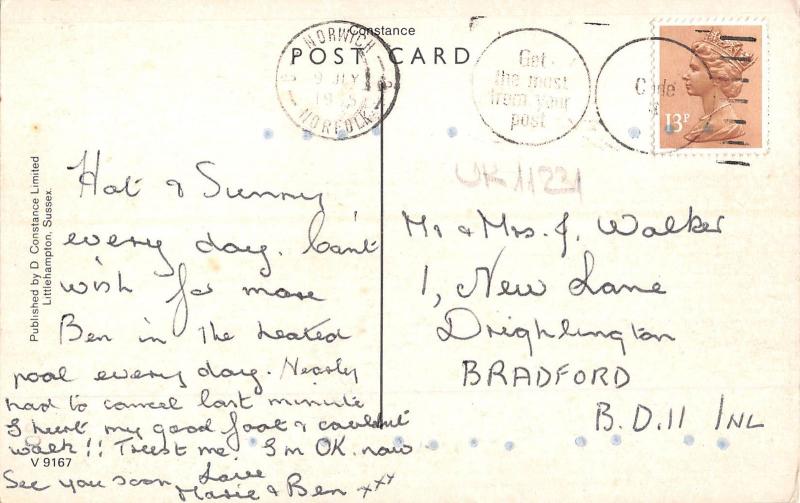 Constance
POST CARD
NORWICH
9 JLY
NORFOLK
Get
the most
from your
post
Code
13P
UK 11221
Published by D Constance Limited
Littlehampton, Sussex.
Hot & Sunny
every day. Can't
wish for more
Ben in the heated
pool every day. Nearly
had to cancel last minute
I hurt my good foot & couldnt
walk!! Trust me! I'm OK. now
See you soon, Love
Marie & Ben xxx
V 9167
Mr & Mrs. J. Walker
1, New Lane
Drighlington
BRADFORD
B.D.11 1NL